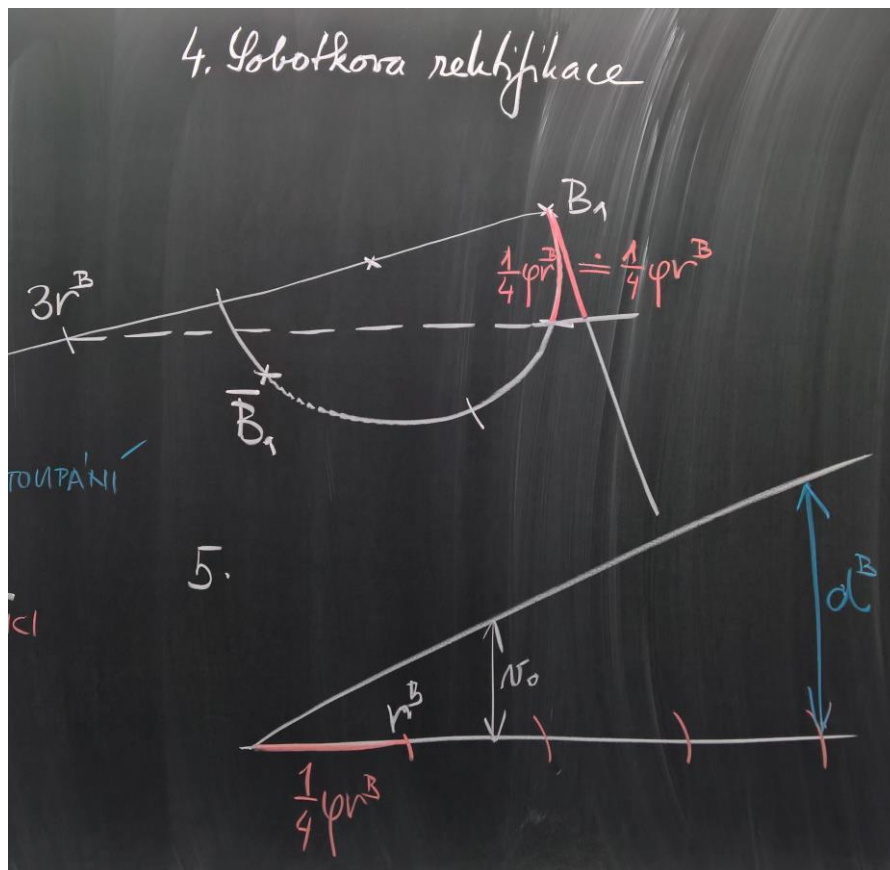 4. Sobotkova rektifikace
B₁
¼φrᴮ ≐ ¼φrᴮ
3rᴮ
B̅₁
TOUPÁNÍ
5.
CI
dᴮ
v₀
rᴮ
¼φrᴮ